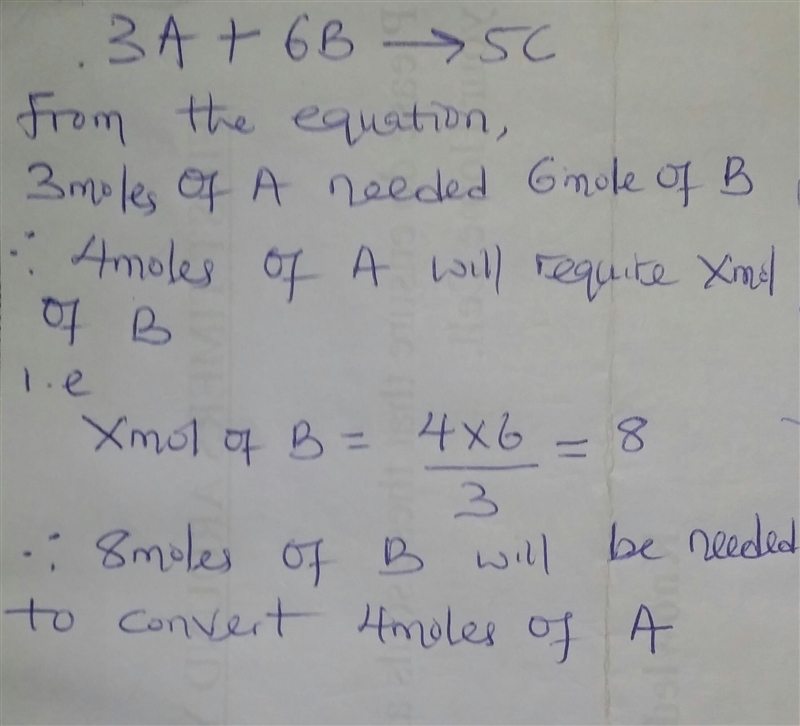 .3A + 6B → 5C
from the equation,
3moles of A needed 6mole of B
∴ 4moles of A will require Xmol
of B
i.e
Xmol of B = 4x6/3 = 8
∴ 8moles of B will be needed
to convert 4moles of A